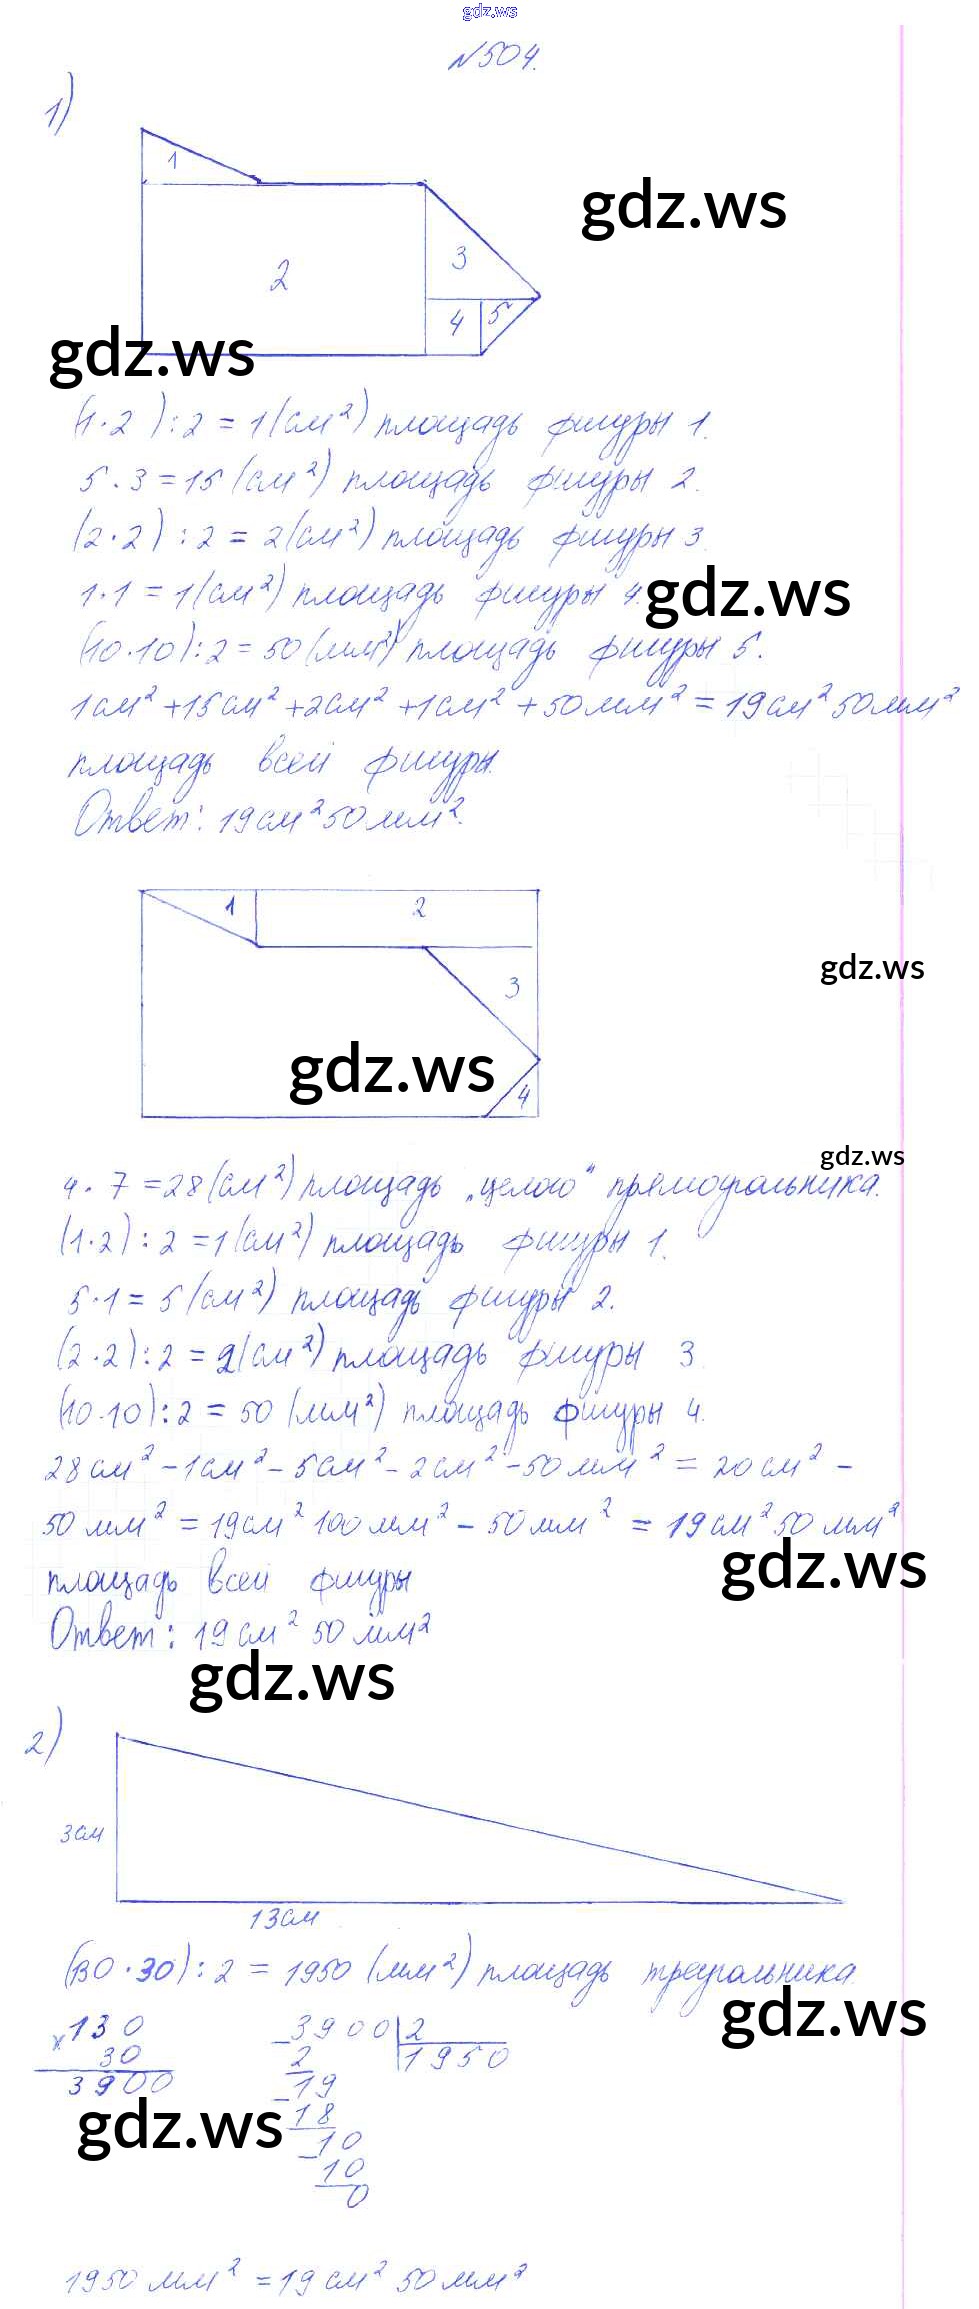 gdz.ws
№504.
1)
1
gdz.ws
3
2
5
4
gdz.ws
(1·2):2=1(см²) площадь фигуры 1.
5·3=15(см²) площадь фигуры 2.
(2·2):2=2(см²) площадь фигуры 3.
1·1=1(см²) площадь фигуры 4.
gdz.ws
(10·10):2=50(мм²) площадь фигуры 5.
1см²+15см²+2см²+1см²+50мм²=19см²50мм²
площадь всей фигуры.
Ответ: 19см²50мм².
1
2
gdz.ws
3
gdz.ws
4
gdz.ws
4·7=28(см²) площадь „целого“ прямоугольника.
(1·2):2=1(см²) площадь фигуры 1.
5·1=5(см²) площадь фигуры 2.
(2·2):2=2(см²) площадь фигуры 3
(10·10):2=50(мм²) площадь фигуры 4.
28см²-1см²-5см²-2см²-50мм²=20см²-
50мм²=19см²100мм²-50мм²=19см²50мм²
gdz.ws
площадь всей фигуры
Ответ: 19см²50мм²
gdz.ws
2)
3см
13см
(130·30):2=1950(мм²) площадь треугольника.
gdz.ws
×130 -3900|2
30 2 1950
3900 -19
gdz.ws
18
-10
10
0
1950мм²=19см²50мм²